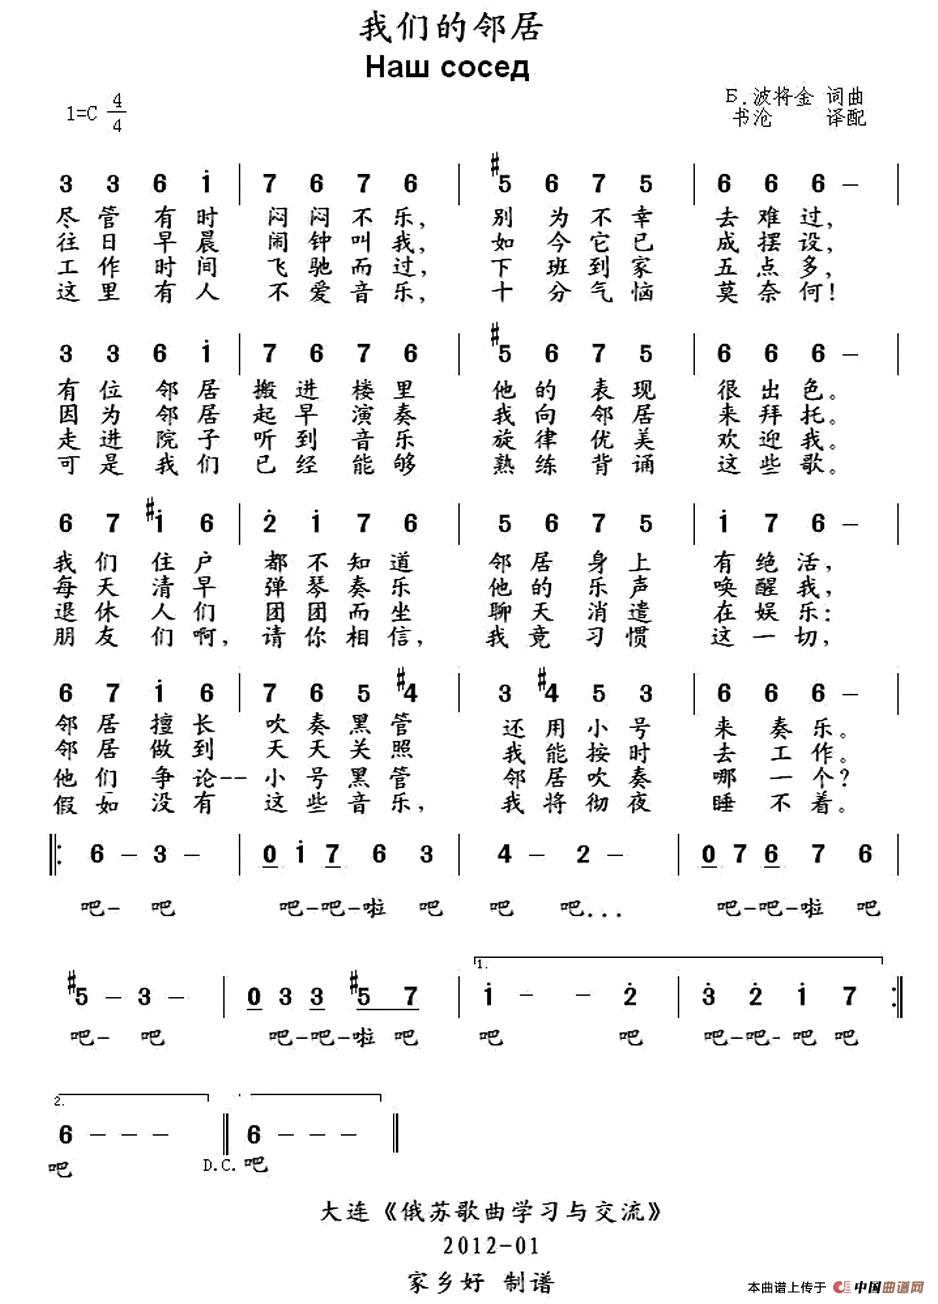 我们的邻居
Наш сосед
1=C 4/4
Б.波将金 词曲
书沧 译配
3 3 6 i | 7 6 7 6 | #5 6 7 5 | 6 6 6 – |
尽管有时 闷闷不乐, 别为不幸 去难过,
往日早晨 闹钟叫我, 如今它已 成摆设,
工作时间 飞驰而过, 下班到家 五点多,
这里有人 不爱音乐, 十分气恼 莫奈何!
3 3 6 i | 7 6 7 6 | #5 6 7 5 | 6 6 6 – |
有位邻居 搬进楼里 他的表现 很出色。
因为邻居 起早演奏 我向邻居 来拜托。
走进院子 听到音乐 旋律优美 欢迎我。
可是我们 已经能够 熟练背诵 这些歌。
6 7 #i 6 | 2 i 7 6 | 5 6 7 5 | i 7 6 – |
我们住户 都不知道 邻居身上 有绝活,
每天清早 弹琴奏乐 他的乐声 唤醒我,
退休人们 团团而坐 聊天消遣 在娱乐:
朋友们啊, 请你相信, 我竟习惯 这一切,
6 7 i 6 | 7 6 5 #4 | 3 #4 5 3 | 6 6 6 – |
邻居擅长 吹奏黑管 还用小号 来奏乐。
邻居做到 天天关照 我能按时 去工作。
他们争论-- 小号黑管 邻居吹奏 哪一个?
假如没有 这些音乐, 我将彻夜 睡不着。
‖: 6 – 3 – | 0 i 7 6 3 | 4 – 2 – | 0 7 6 7 6 |
吧- 吧 吧-吧-啦 吧 吧 吧... 吧-吧-啦 吧
1.
#5 – 3 – | 0 3 3 #5 7 | i – – 2 | 3 2 i 7 :‖
吧- 吧 吧-吧-啦 吧 吧 吧 吧-吧- 吧 吧
2.
6 – – – ‖ 6 – – – ‖
吧 D.C. 吧
大连《俄苏歌曲学习与交流》
2012-01
家乡好 制谱
本曲谱上传于 中国曲谱网